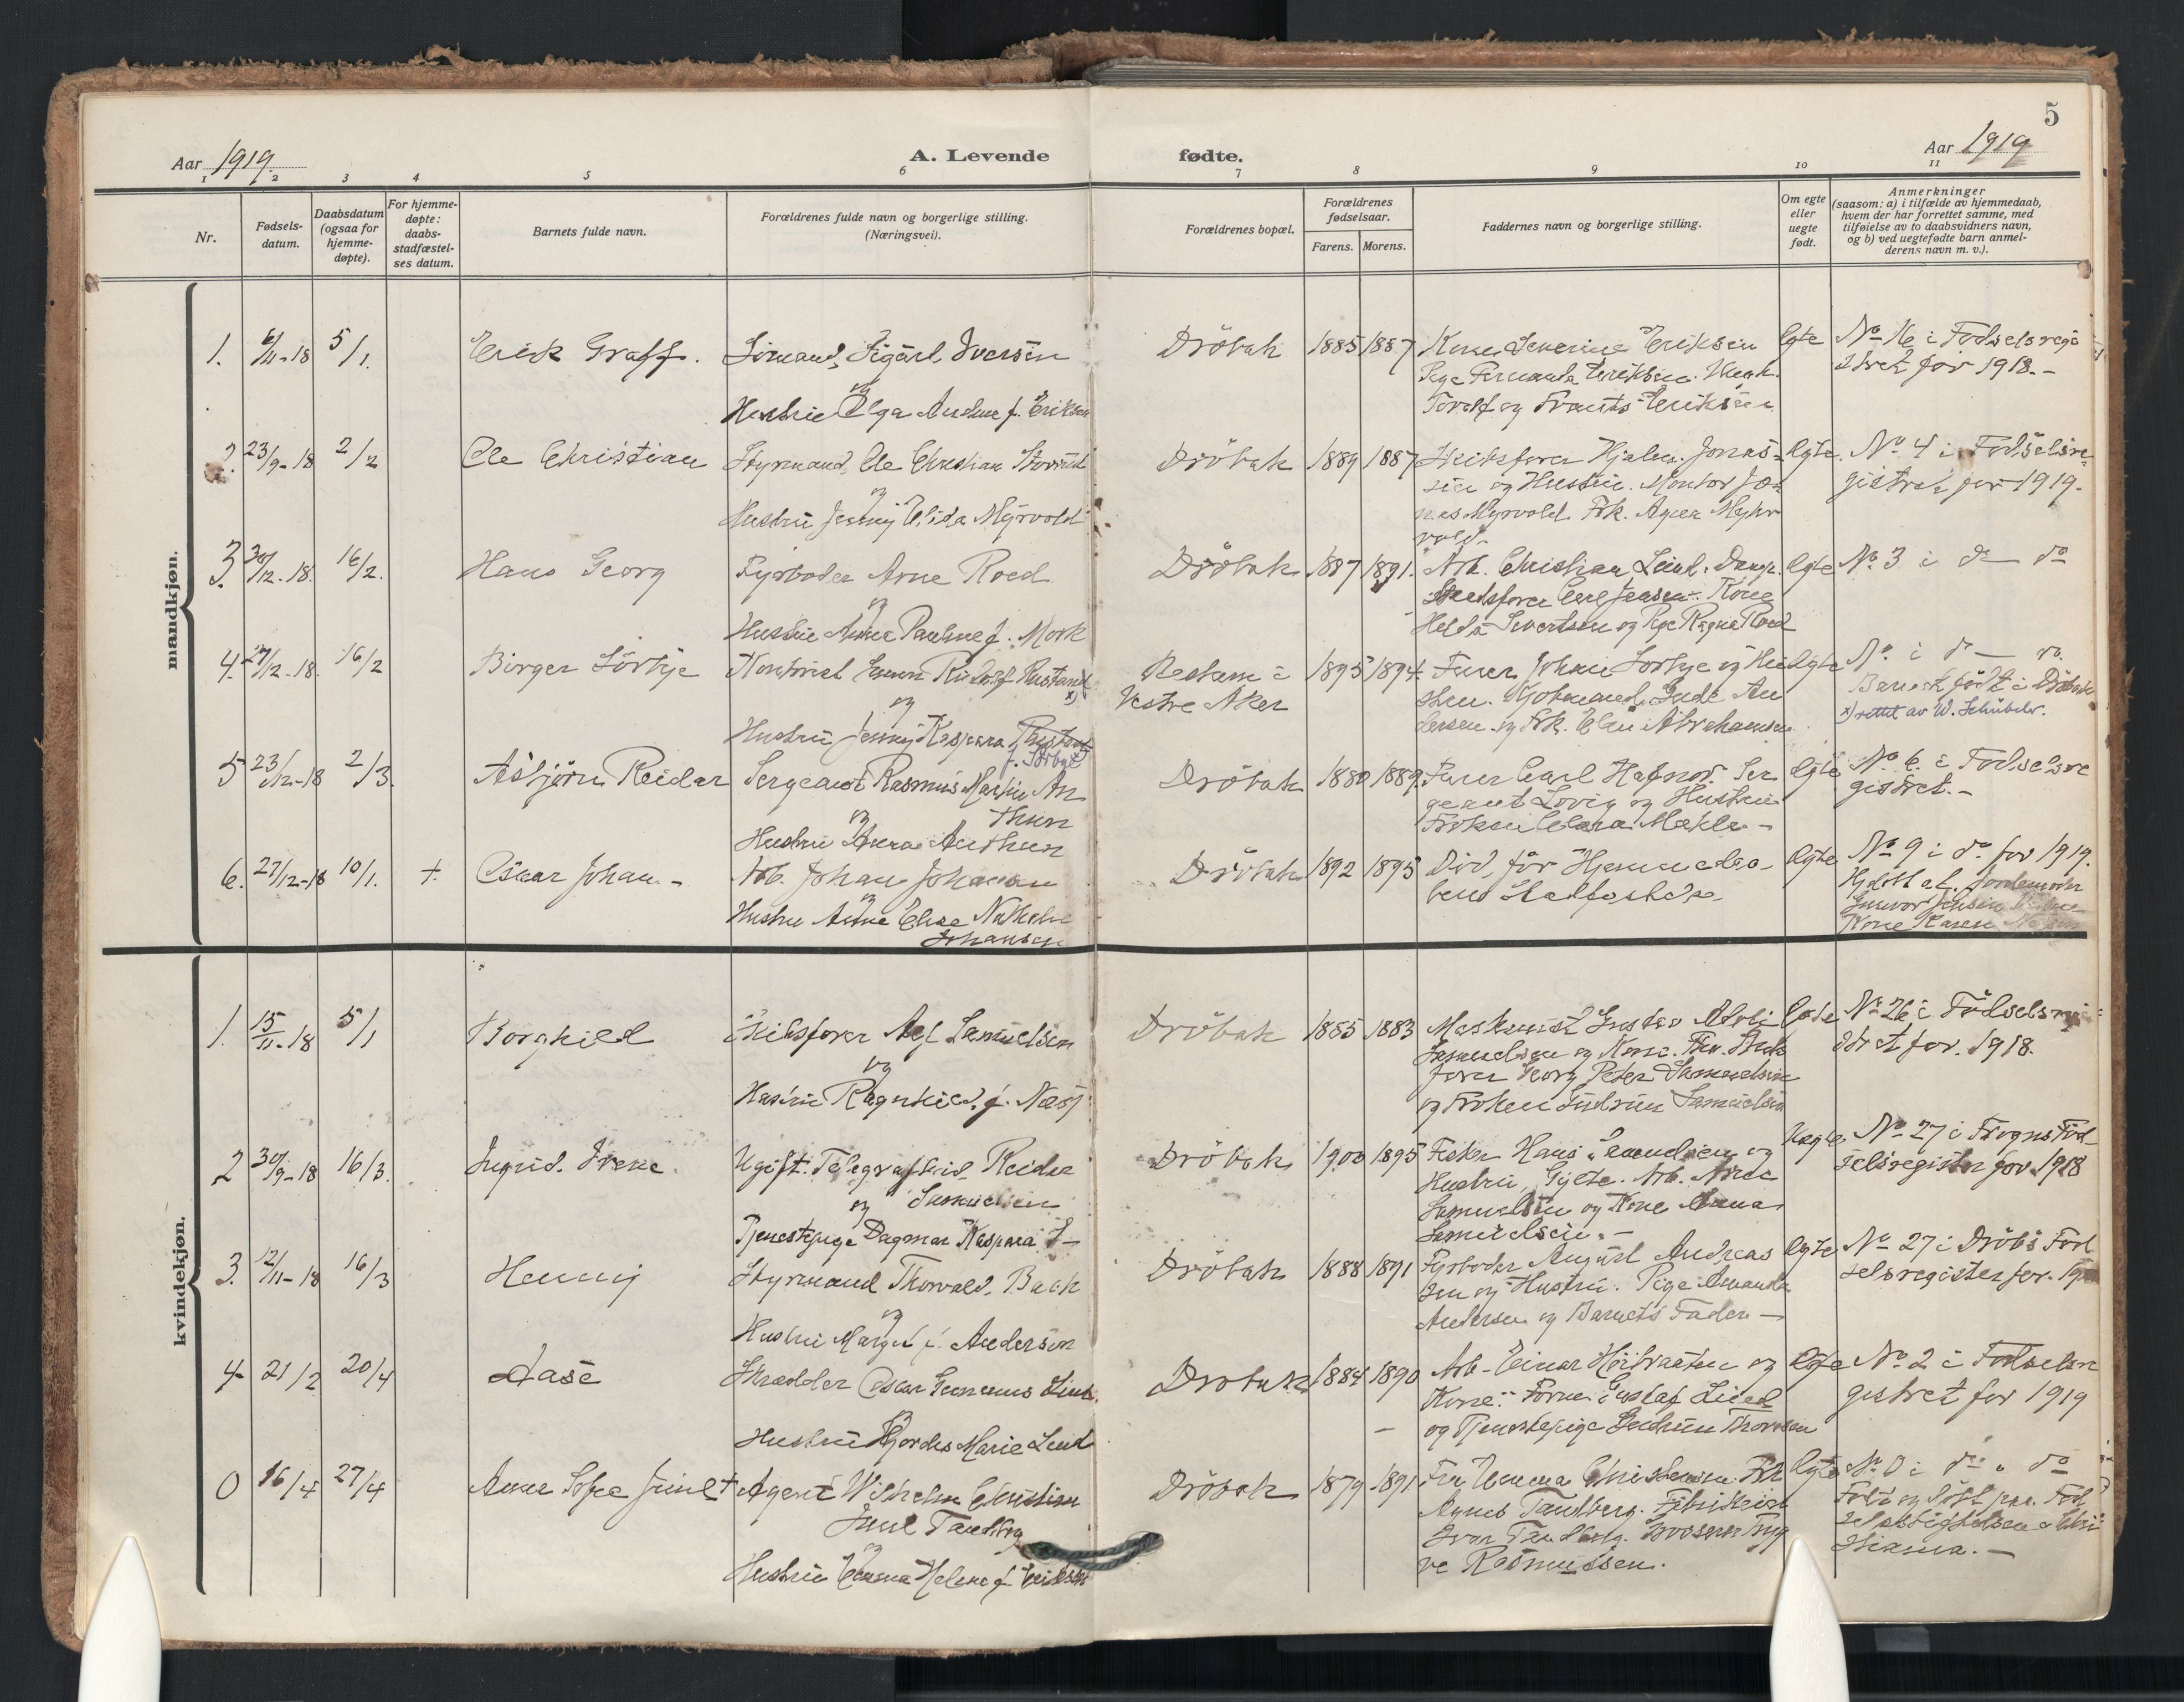 5
Aar 1919.
A. Levende
fødte.
Aar 1919
1 2 3 4 5 6 7 8 9 10 11
Nr.
Fødsels-
datum.
Daabsdatum
(ogsaa for
hjemme-
døpte).
For hjemme-
døpte:
daabs-
stadfæstel-
ses datum.
Barnets fulde navn.
Forældrenes fulde navn og borgerlige stilling.
(Næringsvei).
Forældrenes bopæl.
Forældrenes
fødselsaar.
Farens. Morens.
Faddernes navn og borgerlige stilling.
Om egte
eller
uegte
født.
Anmerkninger
(saasom: a) i tilfælde av hjemmedaab,
hvem der har forrettet samme, med
tilføielse av to daabsvidners navn,
og b) ved uegtefødte barn anmel-
derens navn m. v.).
mandkjøn.
1. 6/11-18 5/1. Erik Graff.
Sömand, Sigurd Iversen
og
Hustru Olga Andrine f. Eriksen
Dröbak 1885 1887
Kone Severine Eriksen
Pige Fernanda Eriksen.
Toralf og Frants Eriksen
Egte
No 16 i Födselsregi
stret for 1918.-
2. 23/9-18 2/2 Ole Christian
Styrmand, Ole Christian
og
Hustru Jenny Elida Myrvold
Dröbak 1889 1887
Skibsförer Hjalm. Jonas-
sen og Hustru. Montör Jo-
nas Myrvold. Frk. Agnes Myhr
vold.
Egte.
No 4 i Födselsre-
gistret for 1919.
3. 30/12-18. 16/2. Hans Georg
Fyrböder Arne Roed
og
Hustru Anna Pauline f. Mork
Dröbak 1887 1891.
Arb. Christian Lind.
Skibsförer Carl Jensen. Kone
Helda Sivertsen og Pige Ragna Roed
Egte
No 3 i do do
4. 27/12-18. 16/2 Birger Sörbye
Kontorist Rudolf Rustand x)
og
Hustru Jenny Kaspara Rustand
f. Sörbye
i
Vestre Aker
1895 1894.
Furer Johan Sörbye og Hu
stru. An
dersen og Frk. Elen Abrahamsen
Egte
No. i do — do.
Barnet födt i Dröbak
x) rettet av W. Schübeler.
5 23/12-18 2/3. Asbjörn Reidar
Sergeant Rasmus Martin An
thun
og
Hustru Anna Anthun
Dröbak 1880 1889.
Furer Carl Hafnor. Ser
geant Lovig og Hustru
Fröken Clara Mækle.-
Egte
No 6. i Födselsre
gistret.-
6. 27/12-18 10/1. +. Oskar Johan.-
Arb. Johan Johansen
og
Hustru Anna Elise Nathalie
Johansen
Dröbak 1892 1893
Död, för Hjemmedaa-
bens Stadfæstelse.
Egte
No 9 i do for 1919.
Hjdöbt af Jordemoder
Kone Karen
kvindekjøn.
1. 15/11-18 5/1 Borghild
Skibsförer Alf Samuelsen
og
Hustru Ragnhild, f. Næs
Dröbak 1885 1883
Maskinist Gustav Adolf
Samuelsen og Kone.
förer Georg Peter Samuelsen
og Fröken Gudrun Samuelsen
Egte
No 26 i Födselsregi
stret for. 1918.
2 30/9-18 16/3. Ingrid. Irene.
Ugift. Telegrafbud. Reidar
Samuelsen
og
Tjenestepige Dagmar Kaspara
Dröbak 1900 1895
Fisker Hans Samuelsen og
Hustru, Gylte. Arb. Arne
Samuelsen og Kone Anna
Samuelsen.-
Uegte.
No 27 i Frogns Föd-
selsregister for. 1918
3. 12/11-18 16/3 Henny
Styrmand Thorvald. Bach
og
Hustru Margit f. Andersen
Dröbak 1888 1891
Fyrböder August Andreas
sen og Hustru. Pige Amanda
Andersen og Barnets Fader.-
Egte
No 27 i Dröb's Föd
selsregister for. 19
4 21/2 20/4 Aase
Skrædder Oscar Lind.
og
Hustru Hjördis Marie Lind
Dröbak 1884 1890
Arb. Einar Höibraaten og
Kone. Gustaf Lind
og Tjenestepige Gudrun Thoresen
Egte
No 2 i Födselsre
gistret for 1919
0 16/4 27/4 Anne Sofie Juul +
Agent Wilhelm Christian
Juul Tandberg
og
Hustru Emma Helene f. Eriksen
Dröbak 1879 1891
Fru Emma Christensen. Frk
Agnes Tandberg. Fabrikeier
Ivar Tandberg. Tryg
ve Rasmussen.
Egte
No 0 i do " do
Födt og döbt paa Föd
selsstiftelsen i Chri
stiania.-